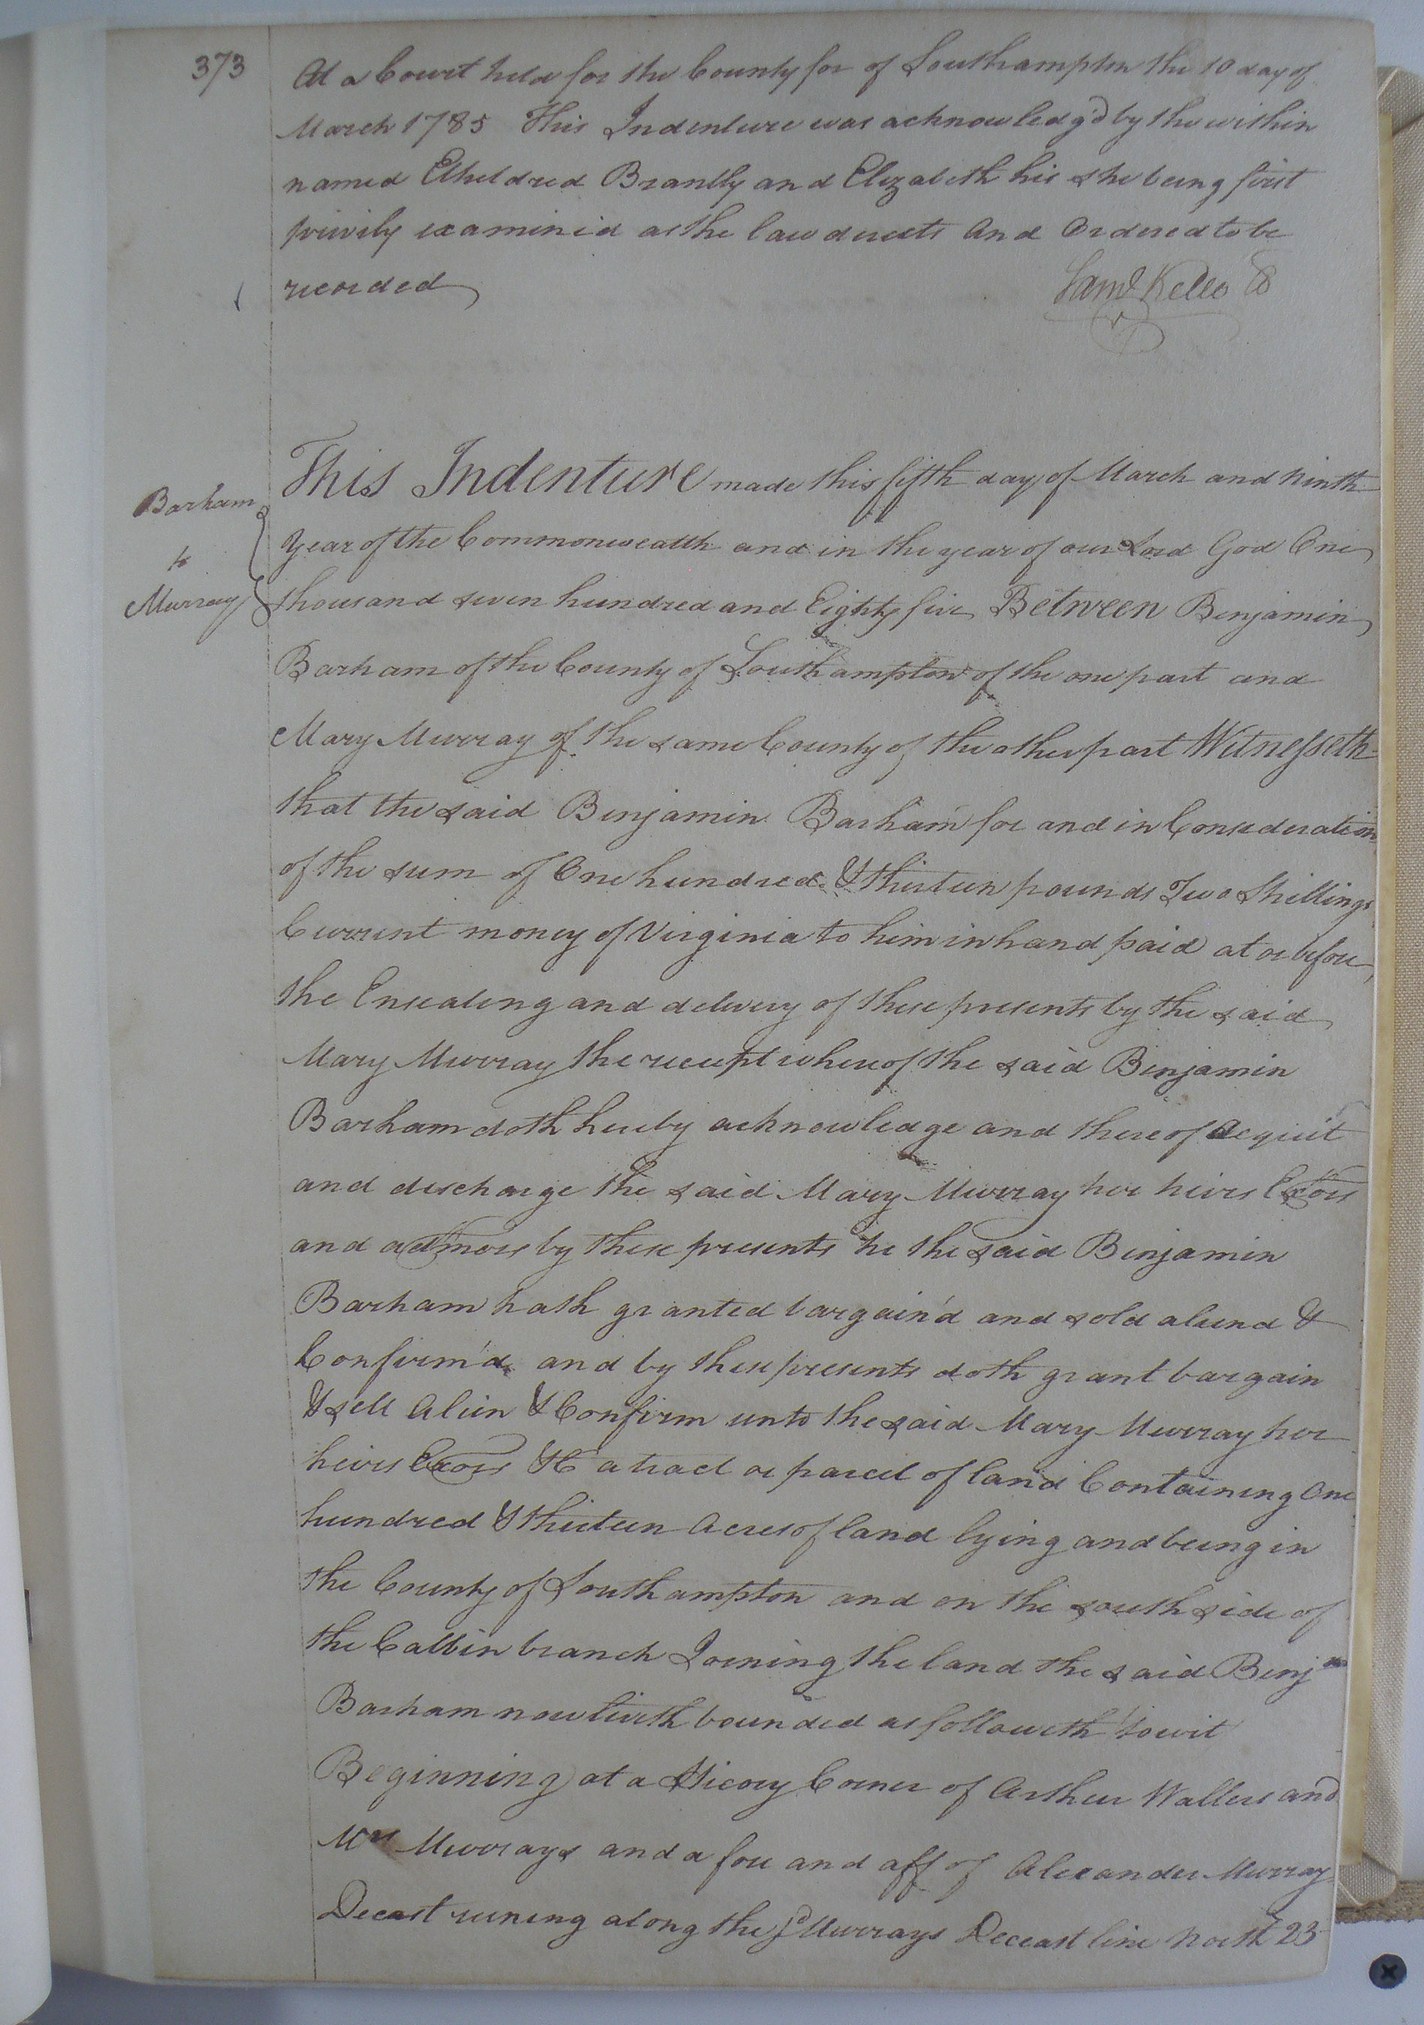 373
At a Court held for the County for of Southampton the 10 day of
March 1785 This Indenture was acknowledg'd by the within
named Etheldred Brantly and Elizabeth his she being first
privily examined as the law directs And Ordered to be
recorded
Saml Kello
Barham
to
Murray
This Indenture made this fifth day of March and ninth
year of the Commonwealth and in the year of our Lord God One
thousand seven hundred and Eighty five Between Benjamin
Barham of the County of Southampton of the one part and
Mary Murray of the same County of the other part Witnesseth
that the said Benjamin Barham for and in Consideration
of the sum of One hundred & thirteen pounds Two Shillings
Current money of Virginia to him in hand paid at or before
the Ensealing and delivery of these presents by the said
Mary Murray the receipt whereof the said Benjamin
Barham doth hereby acknowledge and thereof Acquit
and discharge the said Mary Murray her heirs Exors
and admors by these presents he the said Benjamin
Barham hath granted bargain'd and sold aliend &
Confirm'd and by these presents doth grant bargain
& sell Alien & Confirm unto the said Mary Murray her
heirs Exors &C a tract or parcel of land Containing One
hundred & thirteen Acres of land lying and being in
the County of Southampton and on the south side of
the Cabbin branch Joining the land the said Benjn
Barham now liveth bounded as followeth towit
Beginning at a Hicory Corner of Arthur Wallers and
Mrs Murrays and a fore and aff of Alexander Murray
Deceast runing along the sd Murrays Deceast line North 23